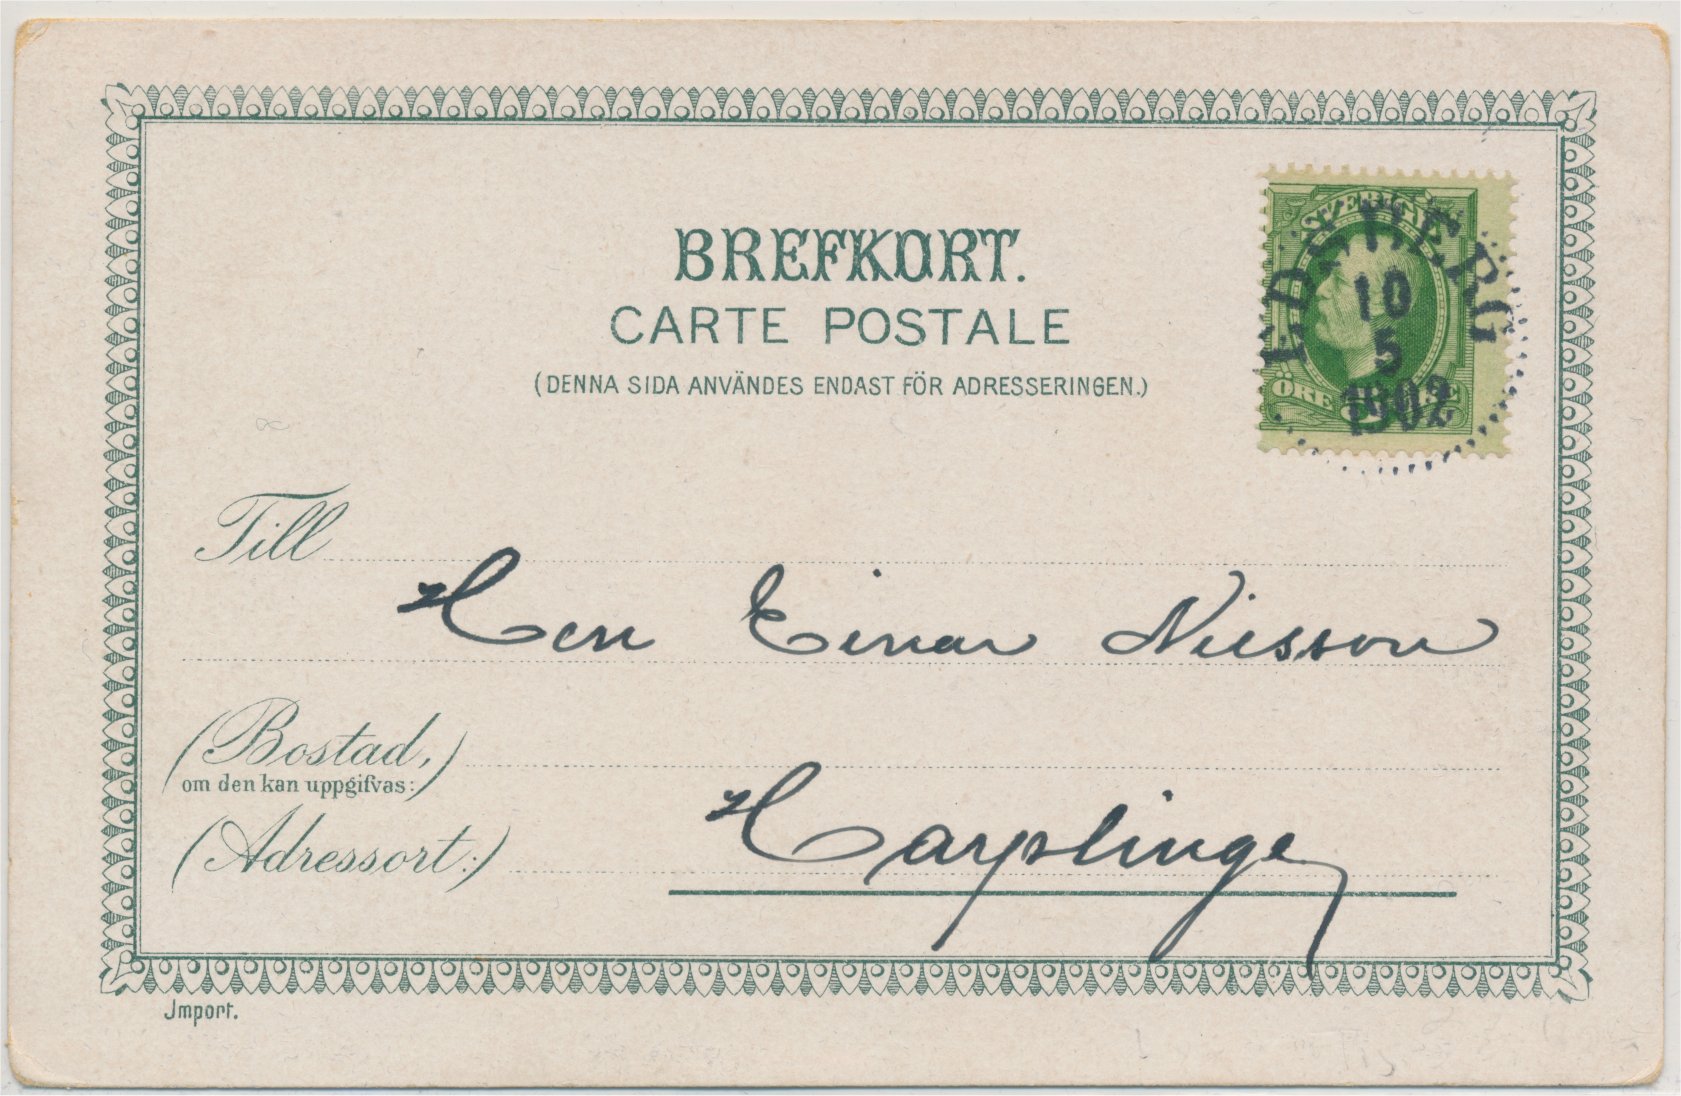 BREFKORT.
CARTE POSTALE
(DENNA SIDA ANVÄNDES ENDAST FÖR ADRESSERINGEN.)
SVERIGE
10
5
1902
ÖRE
Till
Herr Einar Nilsson
(Bostad,)
om den kan uppgifvas:
Harplinge
(Adressort:)
Import.